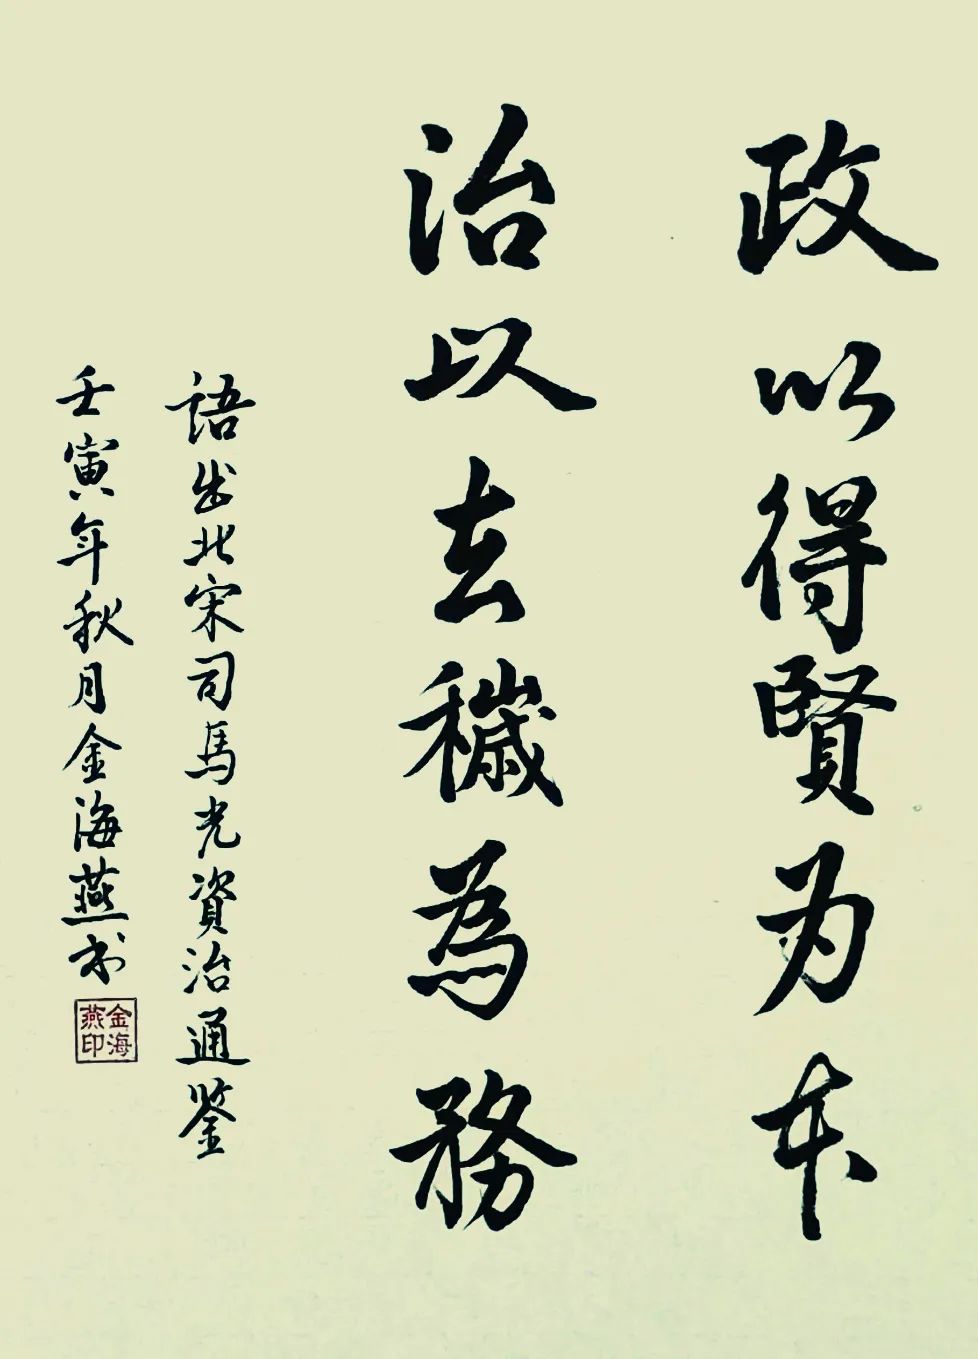 政以得賢为本
治以去穢為務
語出北宋司馬光資治通鉴
壬寅年秋月金海燕书
金海
燕印